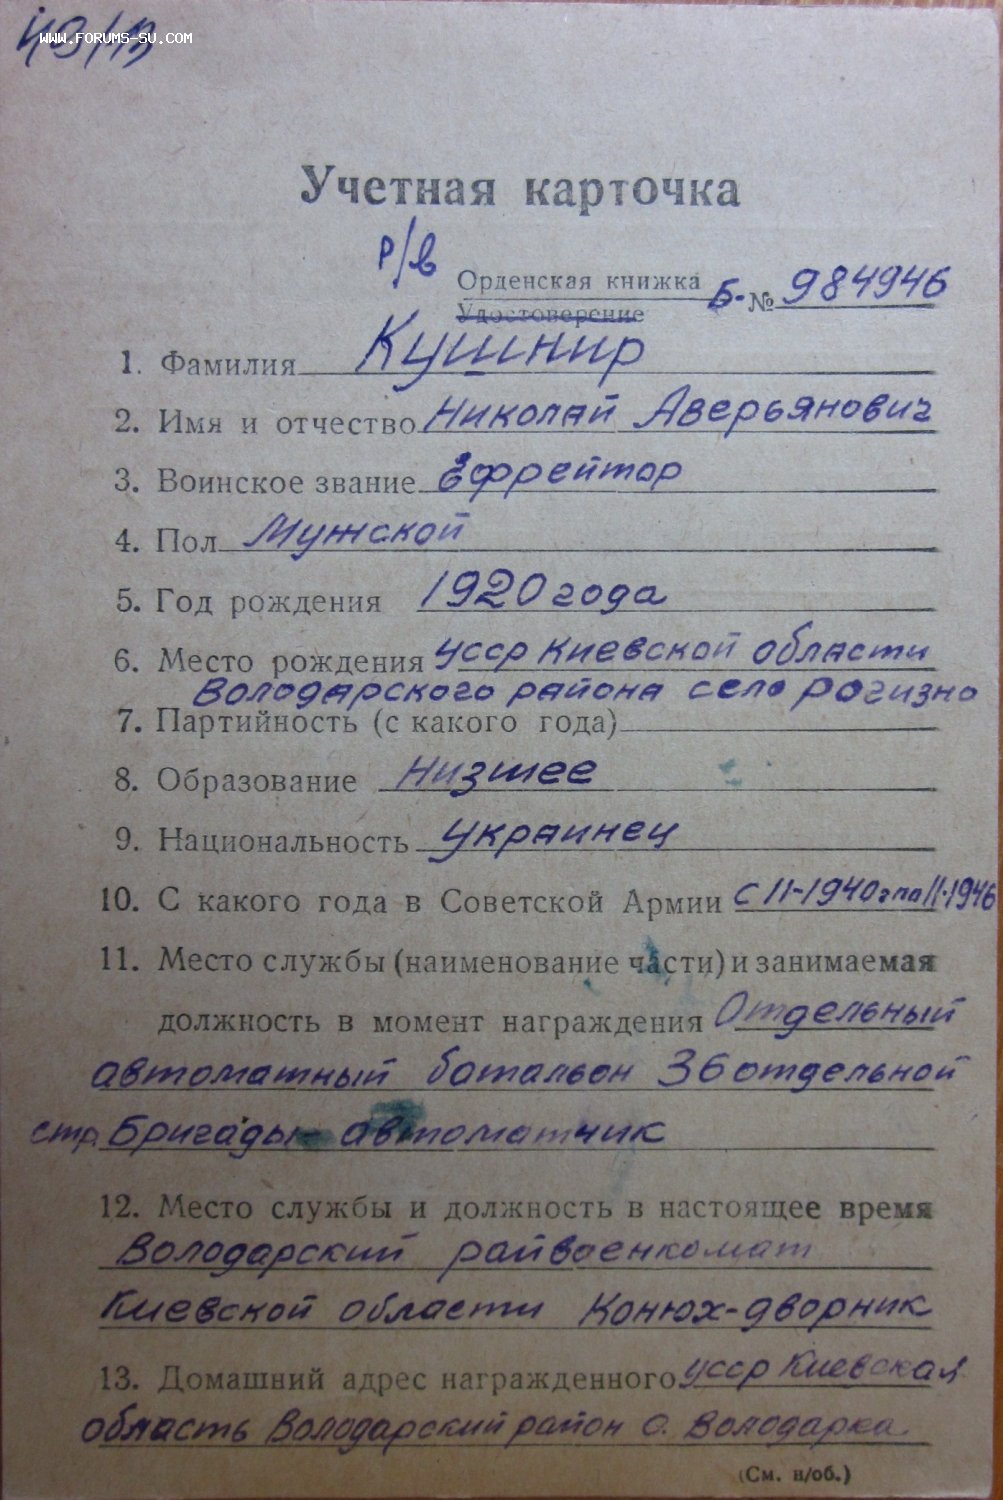 www.forums-su.com
Учетная карточка
р/в
Орденская книжка Б-№ 984946
Удостоверение
1. Фамилия Кушнир
2. Имя и отчество Николай Аверьянович
3. Воинское звание Ефрейтор
4. Пол Мужской
5. Год рождения 1920 года
6. Место рождения УССР Киевской области
Володарского района село Рогизно
7. Партийность (с какого года)
8. Образование Низшее
9. Национальность украинец
10. С какого года в Советской Армии с 11-1940г по 11.1946
11. Место службы (наименование части) и занимаемая
должность в момент награждения Отдельный
автоматный батальон 36 отдельной
стр. Бригады - автоматчик
12. Место службы и должность в настоящее время
Володарский райвоенкомат
Киевской области Конюх-дворник
13. Домашний адрес награжденного УССР Киевская
область Володарский район с. Володарка
(См. н/об.)